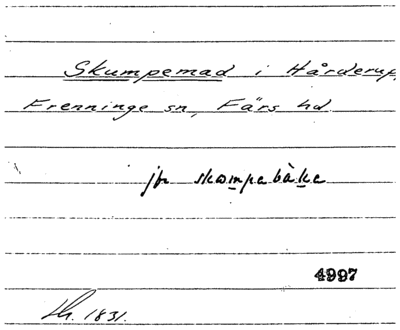 Skumpemad i Hårderup,
Frenninge sn, Färs hd
jfr skompabåka
4997
1831.